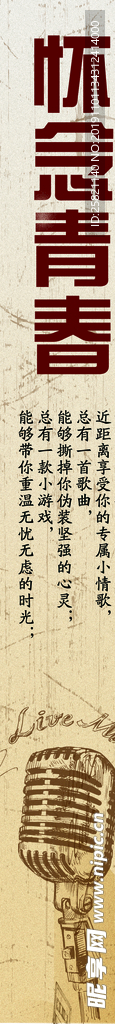 怀念青春
近距离享受你的专属小情歌，
总有一首歌曲，
能够撕掉你伪装坚强的心灵；
总有一款小游戏，
能够带你重温无忧无虑的时光；
Live
ID:25821140 NO:20191101134312414000
昵享网 www.nipic.cn